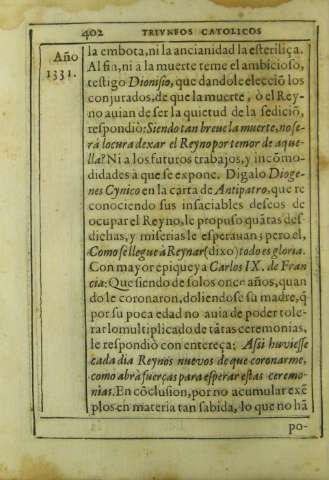 402 TRIVNFOS CATOLICOS
Año
1331.
la embota, ni la ancianidad la esteriliça.
Al fin, ni a la muerte teme el ambicioso,
testigo Dionisio, que dandole elecciõ los
conjurados, de que la muerte, ò el Rey-
no auian de ser la quietud de la sediciõ,
respondiò: Siendo tan breue la muerte, no se-
rà locura dexar el Reyno por temor de aque-
lla? Ni a los futuros trabajos, y incõmo-
didades à que se expone. Digalo Dioge-
nes Cynico en la carta de Antipatro, que re
conociendo sus insaciables deseos de
ocupar el Reyno, le propuso quãtas des-
dichas, y miserias le esperauan; pero el,
Como se llegue à Reynar (dixo) todo es gloria.
Con mayor epiqueya Carlos IX. de Fran
cia: Que siendo de solos once años, quan
do le coronaron, doliendose su madre, q̃
por su poca edad no auia de poder tole-
rar lo multiplicado de tãtas ceremonias,
le respondiò con entereça: Assi huuiesse
cada dia Reynos nuevos de que coronarme,
como abrà fuerças para esperar estas ceremo-
nias. En cõclusion, por no acumular exẽ
plos en materia tan sabida, lo que no hã
po-